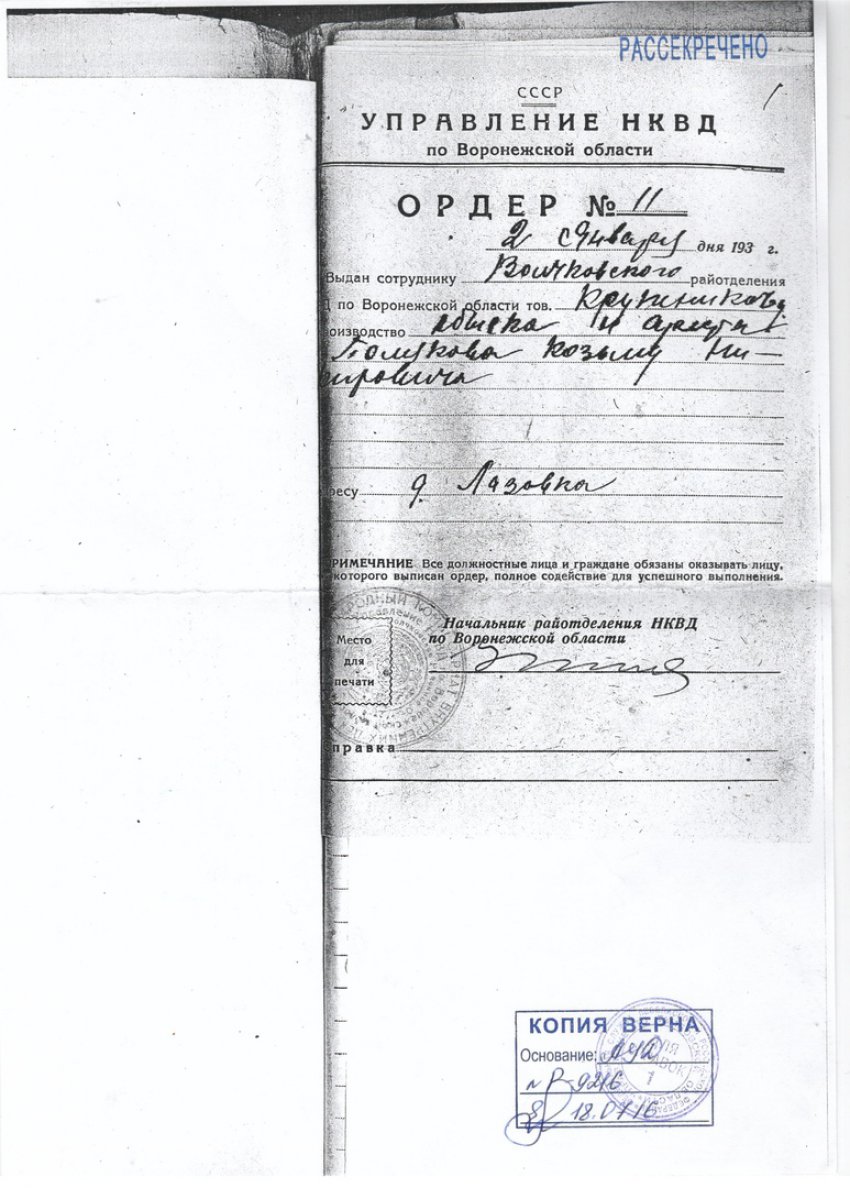 РАССЕКРЕЧЕНО
СССР
УПРАВЛЕНИЕ НКВД
по Воронежской области
ОРДЕР № 11
2 января дня 193 г.
Выдан сотруднику Волчковского райотделения
Д по Воронежской области тов.
оизводство обыска и ареста
Полукова Козьму Ни-
ресу д. Лазовка
РИМЕЧАНИЕ Все должностные лица и граждане обязаны оказывать лицу,
которого выписан ордер, полное содействие для успешного выполнения.
Начальник райотделения НКВД
по Воронежской области
Место
для
печати
правка
КОПИЯ ВЕРНА
Основание: АУД
№ Р-9216
18.01.16